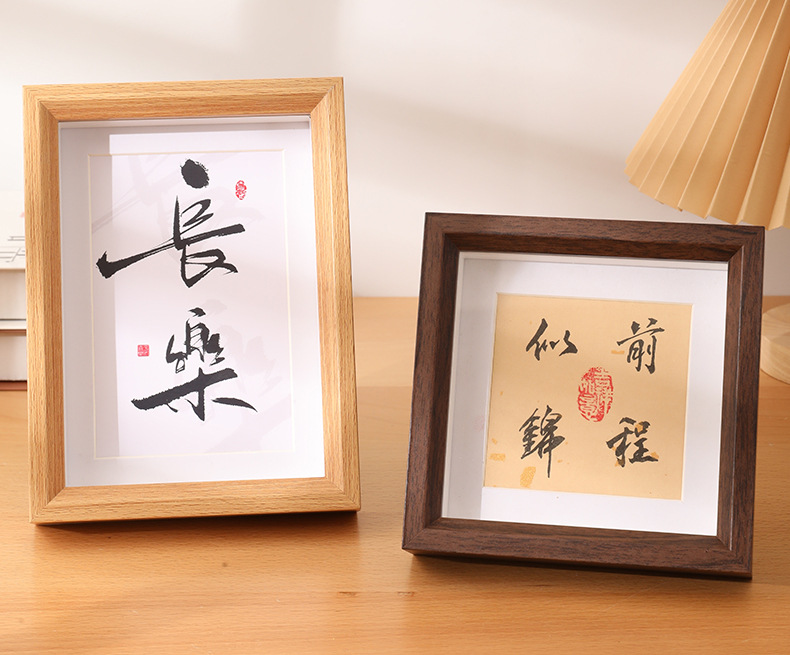 長樂
前程
似錦